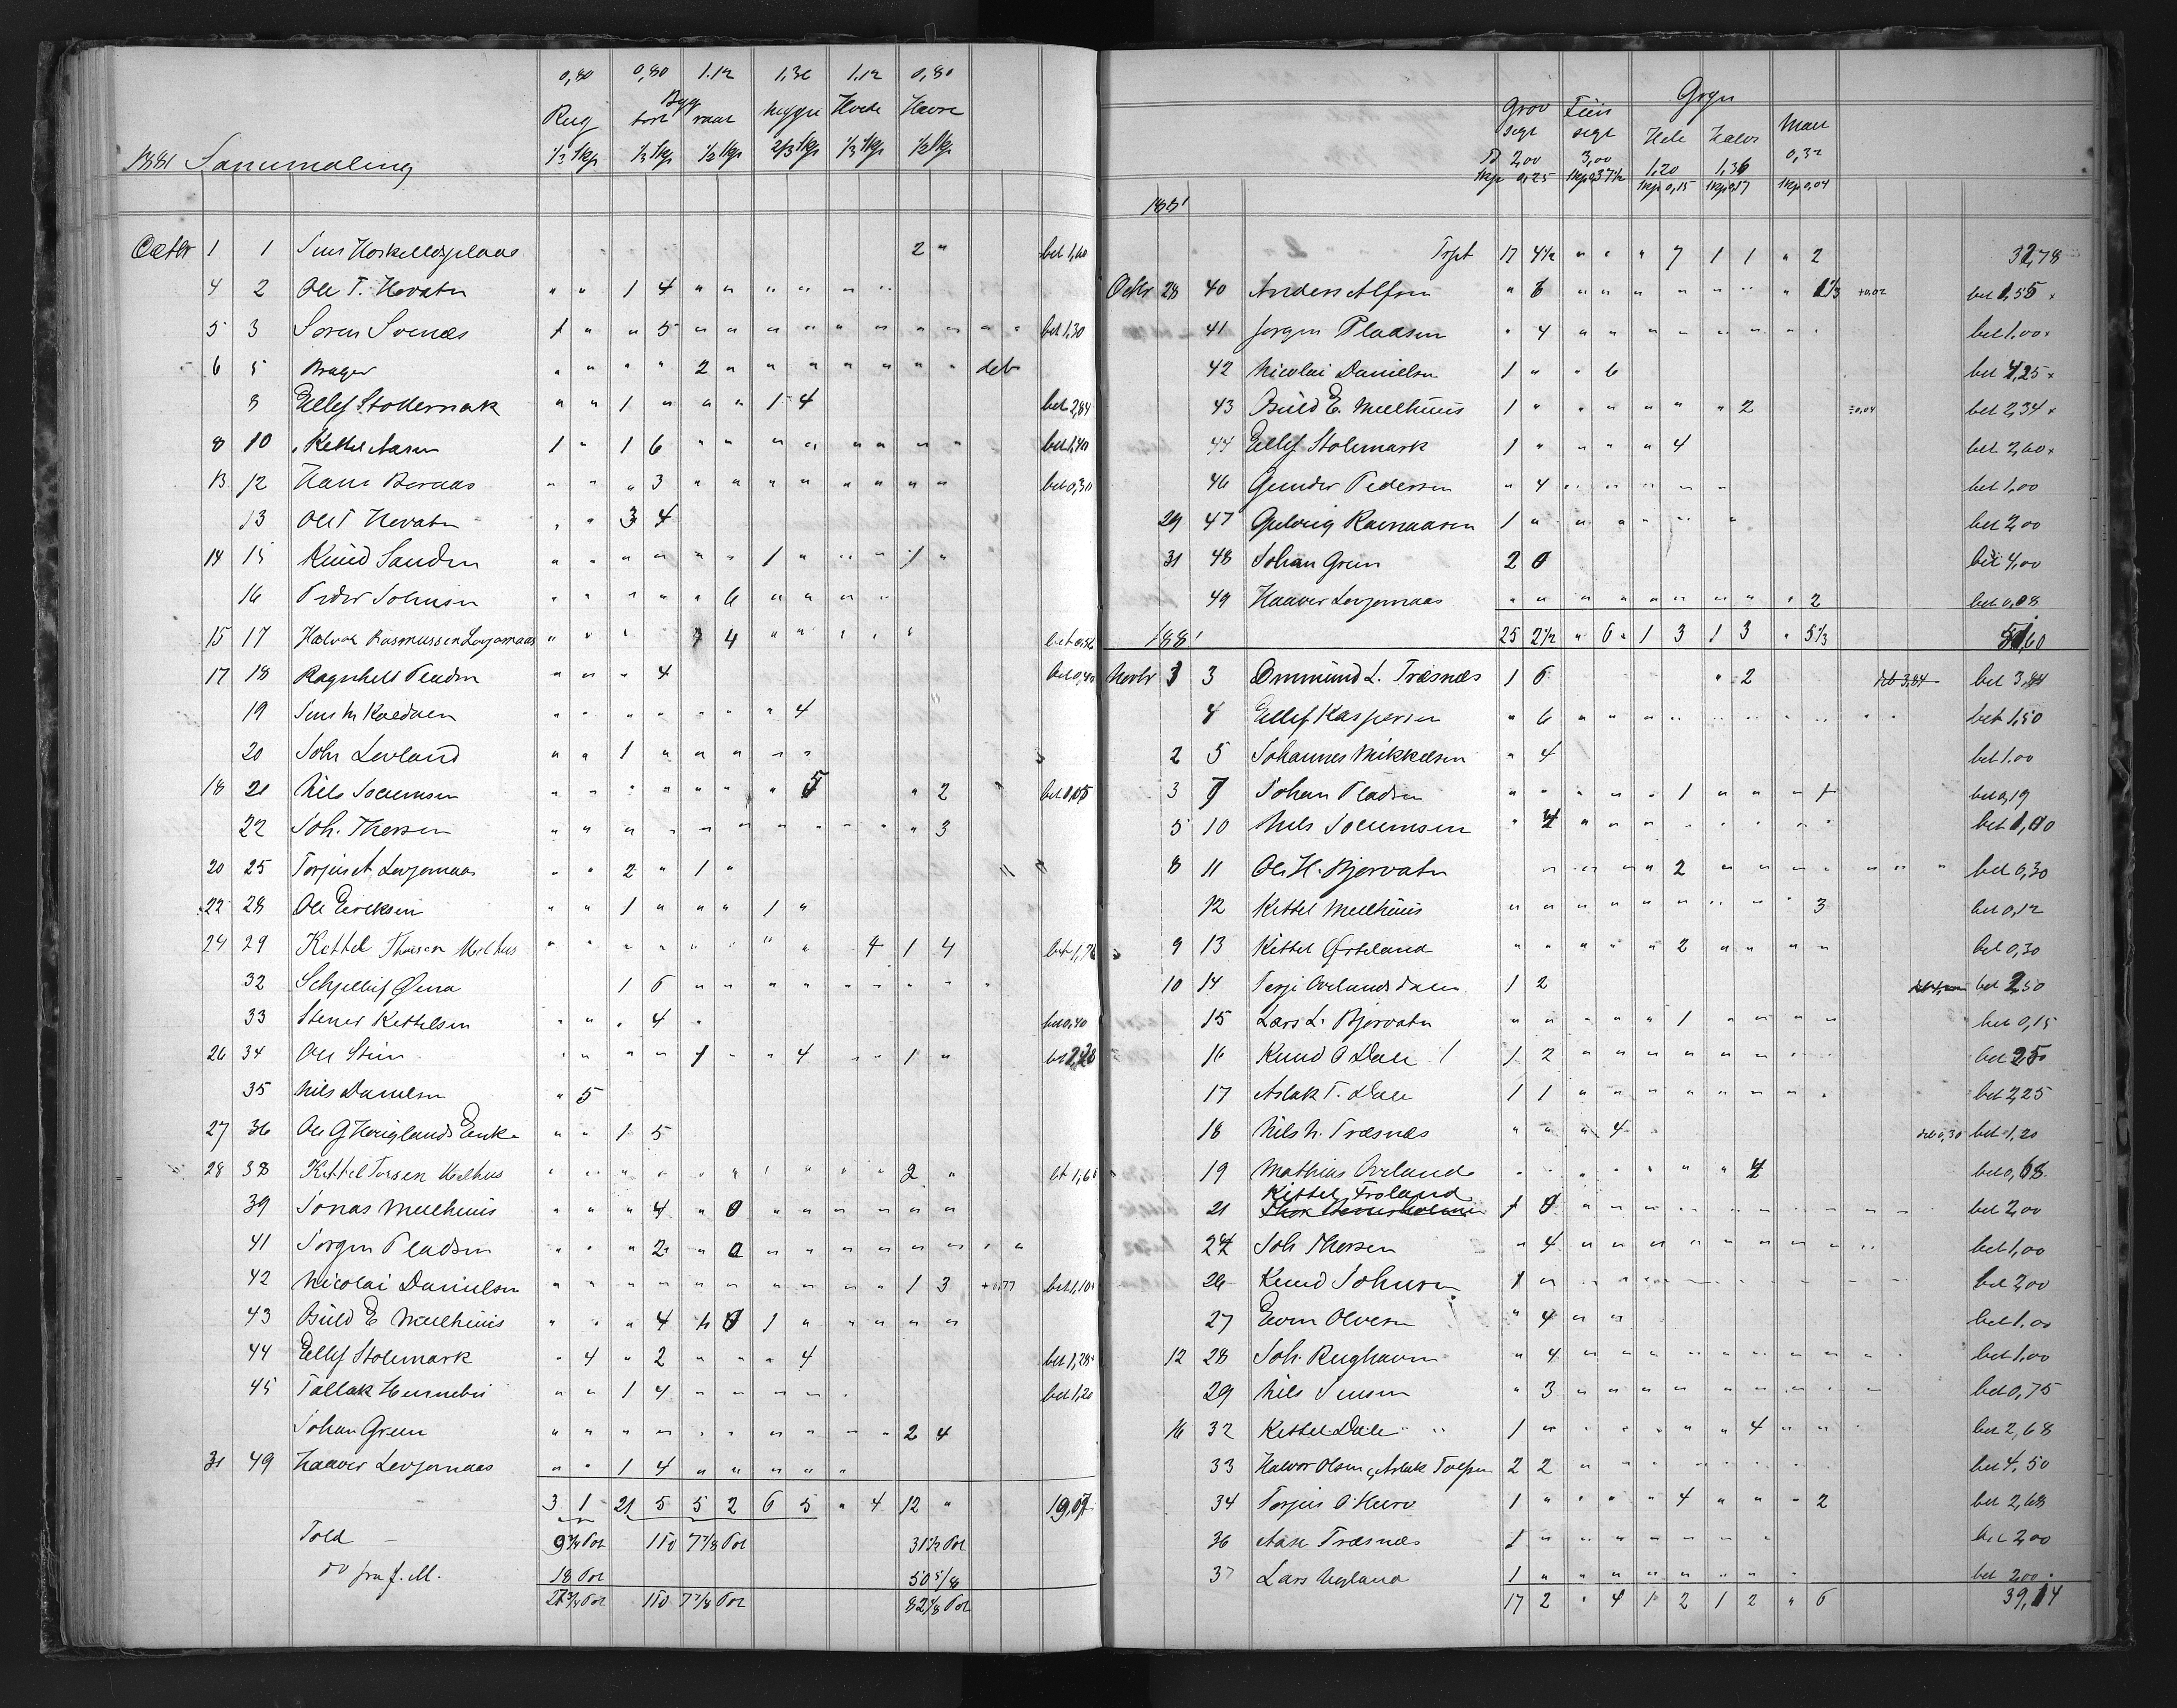 0,80 0,80 1.12 1,36 1.12 0,80
Byg
Rug tørt raat Hvede Havre
1/3 Skp 1/3 Skp 1/2 Skp 2/3 Skp 1/3 Skp 1/2 Skp
1881 Sammaling
Octbr 1 1 2 " bet 1,60
4 2 Ole T. Hevatn " " 1 4 " " " " " "
5 3 Søren Svenes 1 " " 5 " " " " " " " " " " bet 1,30
6 5 Brager " " " " 2 " " " " " " " deb
8 Ellef Stollemark " " 1 " " " 1 4 bet 2,84
8 10 Kettel Aasen 1 " 1 6 " " " " " " " " bet 1,40
13 12 Hans Beraas " " " 3 " " " " " " " " bet 0,30
13 Ole T Hevatn " " 3 4
14 15 Knud Sanden " " " " " " 1 " " " 1 "
16 Peder Johnsen " " " " " 6 " " " "
15 17 Halvor Rasmussen Løvjomaas " " " 4 " " " " "
17 18 Ragnhell Pladsen " " " 4 bet 0,40
19 Jens N Kaedalen " " " " " " " 4
20 John Levland " " 1 " " " " "
18 21 Nils Soelemsen " " " " " " " 5 " 2 bet 1,05
22 Joh. Thersen " " " " " " " " " " " 3
20 25 Torjus A Løvjomaas " " 2 " 1 "
22 28 Ole Eriksen " " 1 " " " 1 "
24 29 Kettel Thorsen Melhus " " " " " " " " 4 1 4 bet 1,76
32 Schjellif Øena 1 6 " " " " " " " " "
33 Stener Kettelsen " " " 4 " bet 0,40
26 34 Ole Stein " " " " 1 " " 4 " " 1 "
35 Nils Danielsen " 5
27 36 Ole G Høiglands Enke " " 1 5
28 38 Kettel Torsen Melhus " " " " " " " " " " 2 " bt 1,60
39 Jonas Meelhuus " " " 4 " 0 " " " " " "
41 Jørgen Pladsen " " " 2 " 0 " " " " " " " "
42 Nicolai Danielsen " " " " " " " " " " 1 3 +0,77 bet 1,10
43 Osuld E Meelhuus " " " 4 0 1 " " " " "
44 Ellef Stolemark " 4 " 2 " " " 4 bet 1,28
45 Tallak Hunnebu " " 1 4 " " " " " bet 1,20
Johan Green " " " " " " " " " " 2 4
31 49 Haaver Løvjomaas " " 1 4 " " " " "
3 1 21 5 5 2 6 5 " 4 12 " 19,07
Told 9 3/4 Pot 1 Td 7 7/8 Pot 31 1/2 Pot
do fra f. M. 18 Pot 50 5/8
27 3/4 Pot 1 Td 7 7/8 Pot 82 1/8 Pot
Gryn
Grov sigt Fiin sigt Hele Halve Mall
Td 2,00 3,00 1,20 1,36 0,32
1 Skp 0,25 1 Skp 0,37 1/2 1 Skp 0,15 1 Skp 0,17 1 Skp 0,04
1881
Trpt 17 4 1/2 " " " 7 1 1 " 2 32,78
Octbr 28 40 Anders Alfsen " 6 " " " " " " " 1 1/3 +0,02 bet 1,55 x
41 Jørgen Pladsen " 4 " " " " " " " " bet 1.00 x
42 Nicolai Danielsen 1 " " 6 bet 4,25 x
43 Osuld E. Meelhuus 1 " " " " " " 2 ÷0,04 bet 2,34 x
44 Ellef Stolemark 1 " " " " 4 bet 2,60 x
46 Gunder Pedersen " 4 " " " " " bet 1,00
29 47 Gulvig Rasmusen 1 " " " " " " bet 2,00
31 48 Johan Green 2 0 bet 4,00
49 Haaver Løvjomaas " " " " " " " " " 2 bet 0,08
1881 25 2 1/2 " 6 " 1 3 1 3 " 5 1/3 51,60
Novbr 1 3 Ommund L. Træsnæs 1 6 " 2 deb 3,84 bet 3,84
4 Ellef Kaspersen " 6 " " " " " " " " " " bet 1,50
2 5 Johannes Mikkelsen " 4 bet 1.00
3 7 Johan Pladsen " " " " " 1 " " " 1 bet 0,19
5 10 Nils Soelemsen " 4 " " " " " " " " bet 1,00
8 11 Ole H. Bjorvatn " " " " 2 " " " " " " " bet 0,30
12 Kettel Meelhuus " " " " " " " " " 3 bet 0,12
9 13 Kittel Ørteland " " " " " 2 " " " " bet 0,30
10 14 Terje Ovelandsdalen 1 2 bet 2,50
15 Lars L. Bjorvatn " " " " " 1 " " " " bet 0,15
16 Knud O Dale 1 1 2 " " " " " " " " bet 2,50
17 Aslak T. Dale 1 1 " " " " " " " " bet 2,25
18 Nils N. Træsnæs " " " 4 deb 0,30 bet 1,20
19 Mathias Ovelande " " " " " " " 4 bet 0,68
Kittel Froland
21 1 0 " " " " " " " " " " bet 2,00
24 Joh Thersen " 4 " " " " " " " " " bet 1,00
26 Knud Johnsen 1 " " " " " " " " " " " bet 2,00
27 Even Olvesen " 4 " " bet 1.00
12 28 Joh. Rughaven " 4 " " " " " " " " " bet 1,00
29 Nils Jensen " 3 " " " " " " " " " bet 0,75
16 32 Kettel Dale " " 1 " " " " " " 4 " " bet 2,68
33 Halvor Olsen & Aslak Tolfsen 2 2 " " " " " " " bet 4,50
34 Torjus O Heiro 1 " " " " 4 " " " 2 bet 2,68
36 Aase Træsnæs 1 " " " " " " " bet 2,00
37 Lars Uglana 1 " " " " " " " " bet 2,00
17 2 " 4 1 2 1 2 " 6 39,14